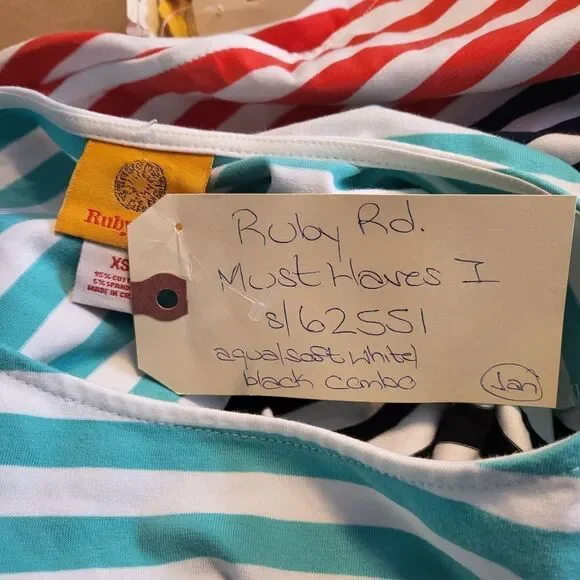 Ruby
XS
95% COT
5% SPAND
MADE IN
Ruby Rd.
Must Haves I
s/62551
aqua/soft white/
black combo
Jan